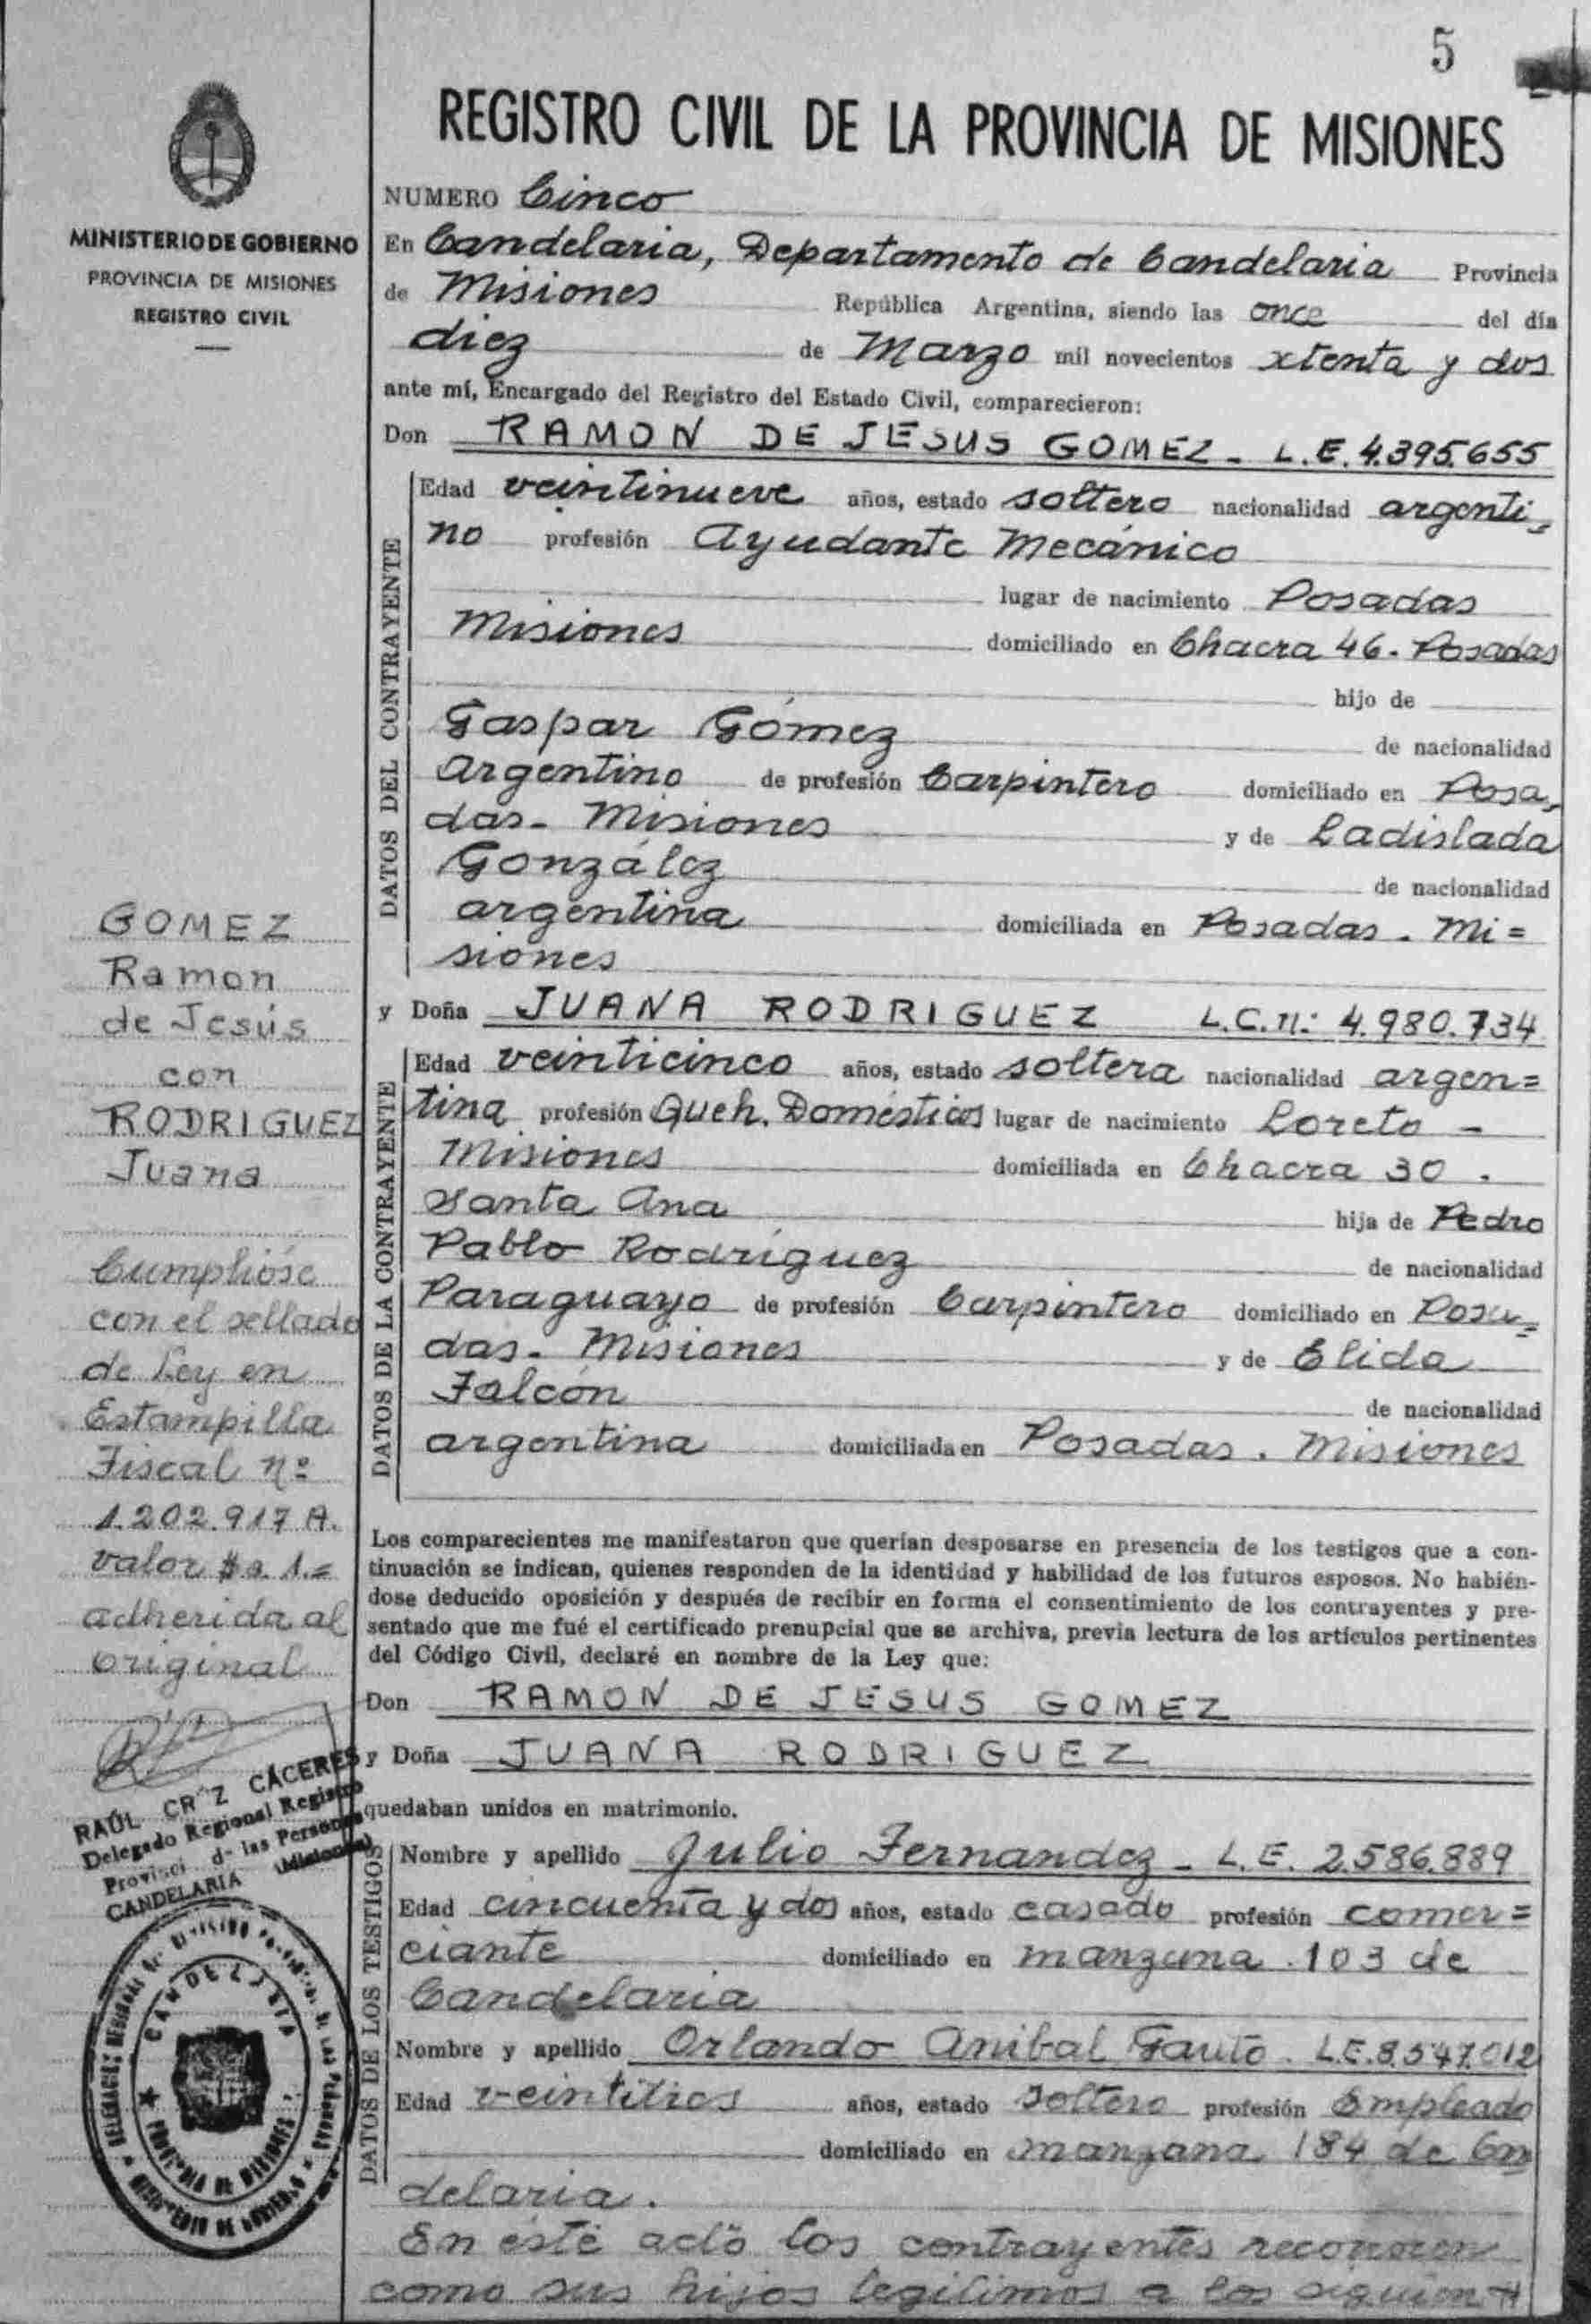 5
REGISTRO CIVIL DE LA PROVINCIA DE MISIONES
MINISTERIO DE GOBIERNO
PROVINCIA DE MISIONES
REGISTRO CIVIL
NUMERO Cinco
En Candelaria, Departamento de Candelaria Provincia
de Misiones República Argentina, siendo las once del día
diez de Marzo mil novecientos setenta y dos
ante mí, Encargado del Registro del Estado Civil, comparecieron:
Don RAMON DE JESUS GOMEZ - L.E. 4.395.655
DATOS DEL CONTRAYENTE
Edad veintinueve años, estado soltero nacionalidad argenti=
no profesión Ayudante Mecánico
lugar de nacimiento Posadas
Misiones domiciliado en Chacra 46 - Posadas
hijo de
Gaspar Gómez de nacionalidad
Argentino de profesión Carpintero domiciliado en Posa=
das - Misiones y de Ladislada
González de nacionalidad
argentina domiciliada en Posadas - Mi=
siones
y Doña JUANA RODRIGUEZ L.C. n: 4.980.734
DATOS DE LA CONTRAYENTE
Edad veinticinco años, estado soltera nacionalidad argen=
tina profesión Queh. Domésticos lugar de nacimiento Loreto -
Misiones domiciliada en Chacra 30 -
Santa Ana hija de Pedro
Pablo Rodríguez de nacionalidad
Paraguayo de profesión Carpintero domiciliado en Posa=
das - Misiones y de Elida
Falcón de nacionalidad
argentina domiciliada en Posadas . Misiones
Los comparecientes me manifestaron que querían desposarse en presencia de los testigos que a con-
tinuación se indican, quienes responden de la identidad y habilidad de los futuros esposos. No habién-
dose deducido oposición y después de recibir en forma el consentimiento de los contrayentes y pre-
sentado que me fué el certificado prenupcial que se archiva, previa lectura de los artículos pertinentes
del Código Civil, declaré en nombre de la Ley que:
Don RAMON DE JESUS GOMEZ
y Doña JUANA RODRIGUEZ
quedaban unidos en matrimonio.
DATOS DE LOS TESTIGOS
Nombre y apellido Julio Fernandez - L.E. 2.586.889
Edad cincuenta y dos años, estado casado profesión comer=
ciante domiciliado en manzana 103 de
Candelaria
Nombre y apellido Orlando Anibal Gauto - L.E. 8.547.012
Edad veintitres años, estado soltero profesión Empleado
domiciliado en manzana 184 de Can
delaria.
En éste acto los contrayentes reconocen
como sus hijos legítimos a los siguien
GOMEZ
Ramon
de Jesús
con
RODRIGUEZ
Juana
Cumplióse
con el sellado
de Ley en
Estampilla
Fiscal nº
1.202.917 A.
valor $a. 1.=
adherida al
original
RAÚL CR Z CÁCERES
Delegado Regional Registro
Provinci d- las Personas
CANDELARIA (Misiones)
CANDELARIA
PROVINCIA DE MISIONES